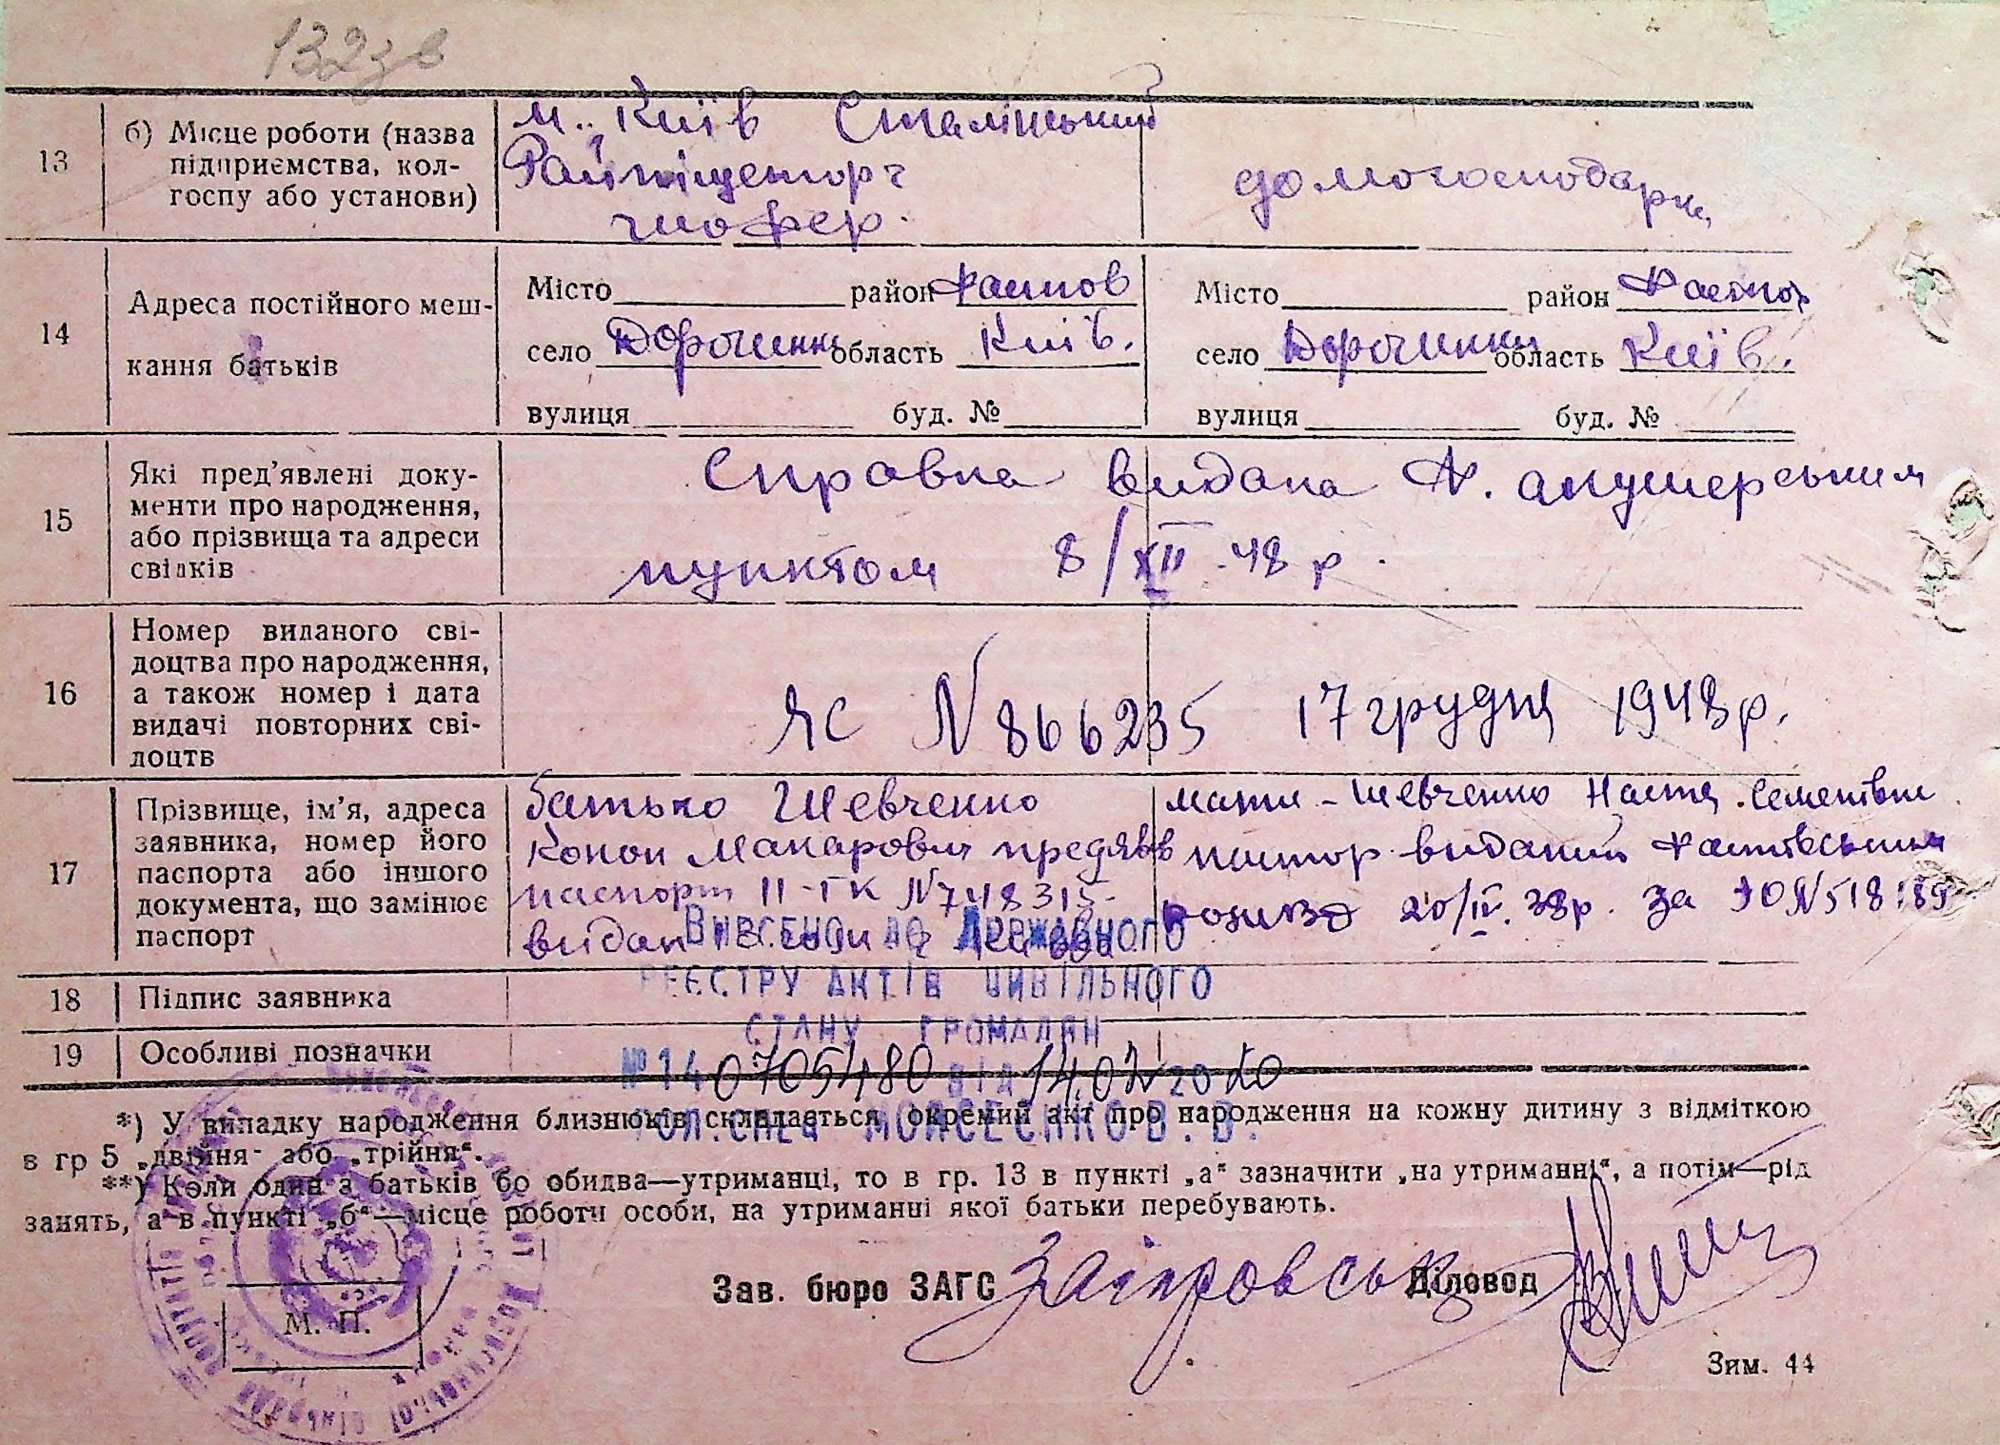 132зв
13
б) Місце роботи (назва
підприємства, кол-
госпу або установи)
м. Київ Сталінський
Райпіщеторг
шофер.
домогосподарка
14
Адреса постійного меш-
кання батьків
Місто район Фастов
село Дорогинка область Київ.
вулиця буд. №
Місто район Фастов
село Дорогинка область Київ.
вулиця буд. №
15
Які пред'явлені доку-
менти про народження,
або прізвища та адреси
свідків
Справка видана Ф. акушерським
пунктом 8/XII-48 р.
16
Номер виданого сві-
доцтва про народження,
а також номер і дата
видачі повторних сві-
доцтв
ЯС N 866235 17 грудня 1948 р.
17
Прізвище, ім'я, адреса
заявника, номер його
паспорта або іншого
документа, що замінює
паспорт
батько Шевченко
Конон Макарович предявив
паспорт II-ГК N 748315
видан
мати - Шевченко Настя Семенівна
паспор виданий Фастівським
20/IV. 38р. за N 518189
18
Підпис заявника
19
Особливі позначки
Внесено до Державного
реєстру актів цивільного
стану громадян
№ 140705480 від 14.02 2020
Гол. спец Моисеєнко В. В.
*) У випадку народження близнюків складається окремий акт про народження на кожну дитину з відміткою
в гр 5 „двійня" або „трійня".
**) Коли один з батьків бо обидва—утриманці, то в гр. 13 в пункті „а" зазначити „на утриманні", а потім—рід
занять, а в пункті „б"—місце роботи особи, на утриманні якої батьки перебувають.
Зав. бюро ЗАГС
Діловод
М. П.
Зим. 44